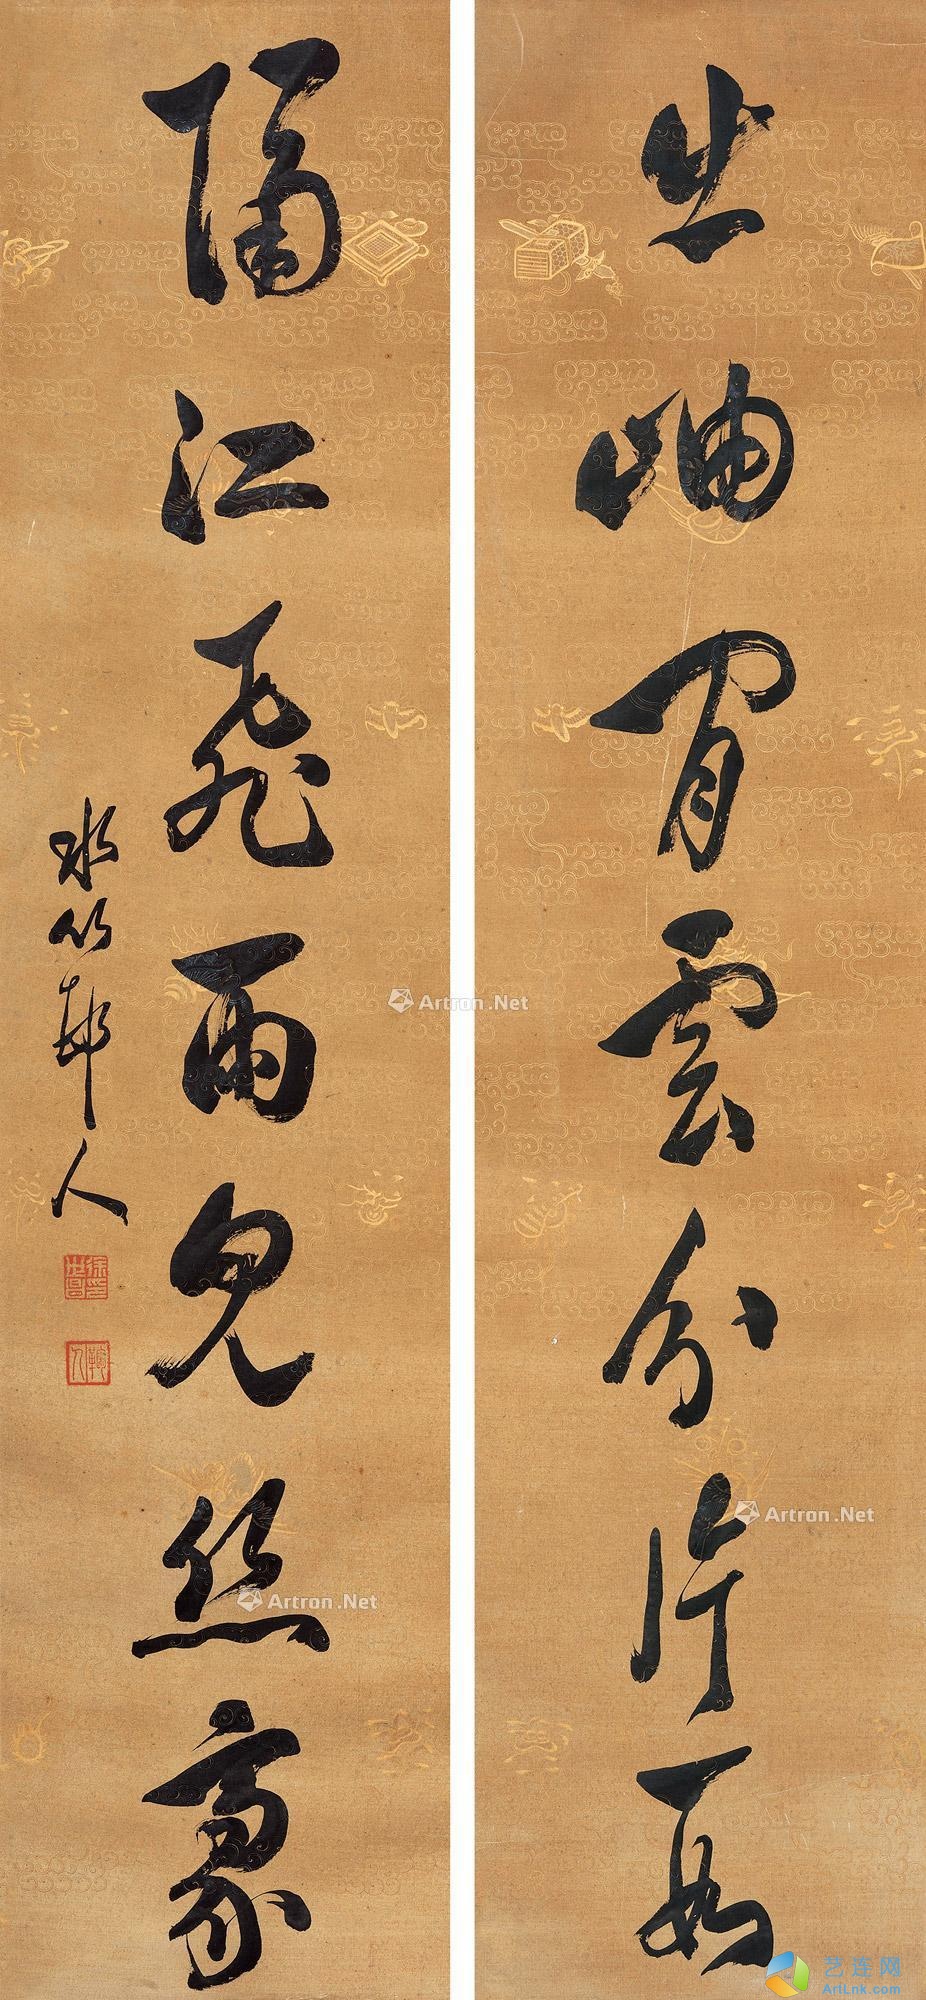 出岫閒雲分片段
隔江飛雨見絲豪
水竹邨人
徐世昌印
鞠人
Artron.Net
Artron.Net
Artron.Net
艺连网
ArtLnk.com